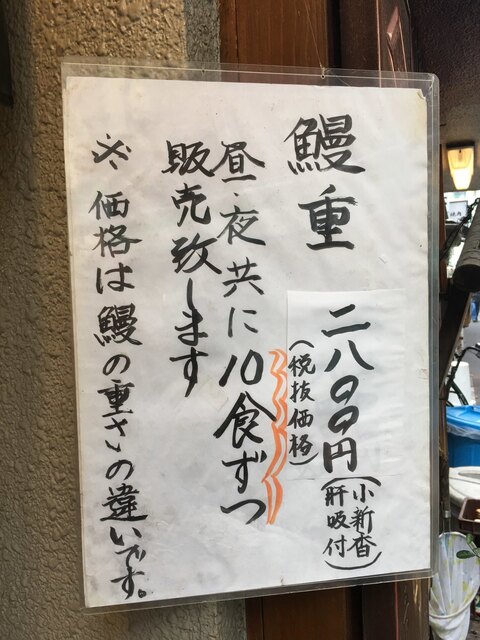 鰻重
二八〇〇円
(税抜価格)
(小新香
肝吸付)
昼・夜共に10食ずつ
販売致します
※価格は鰻の重さの違いです。